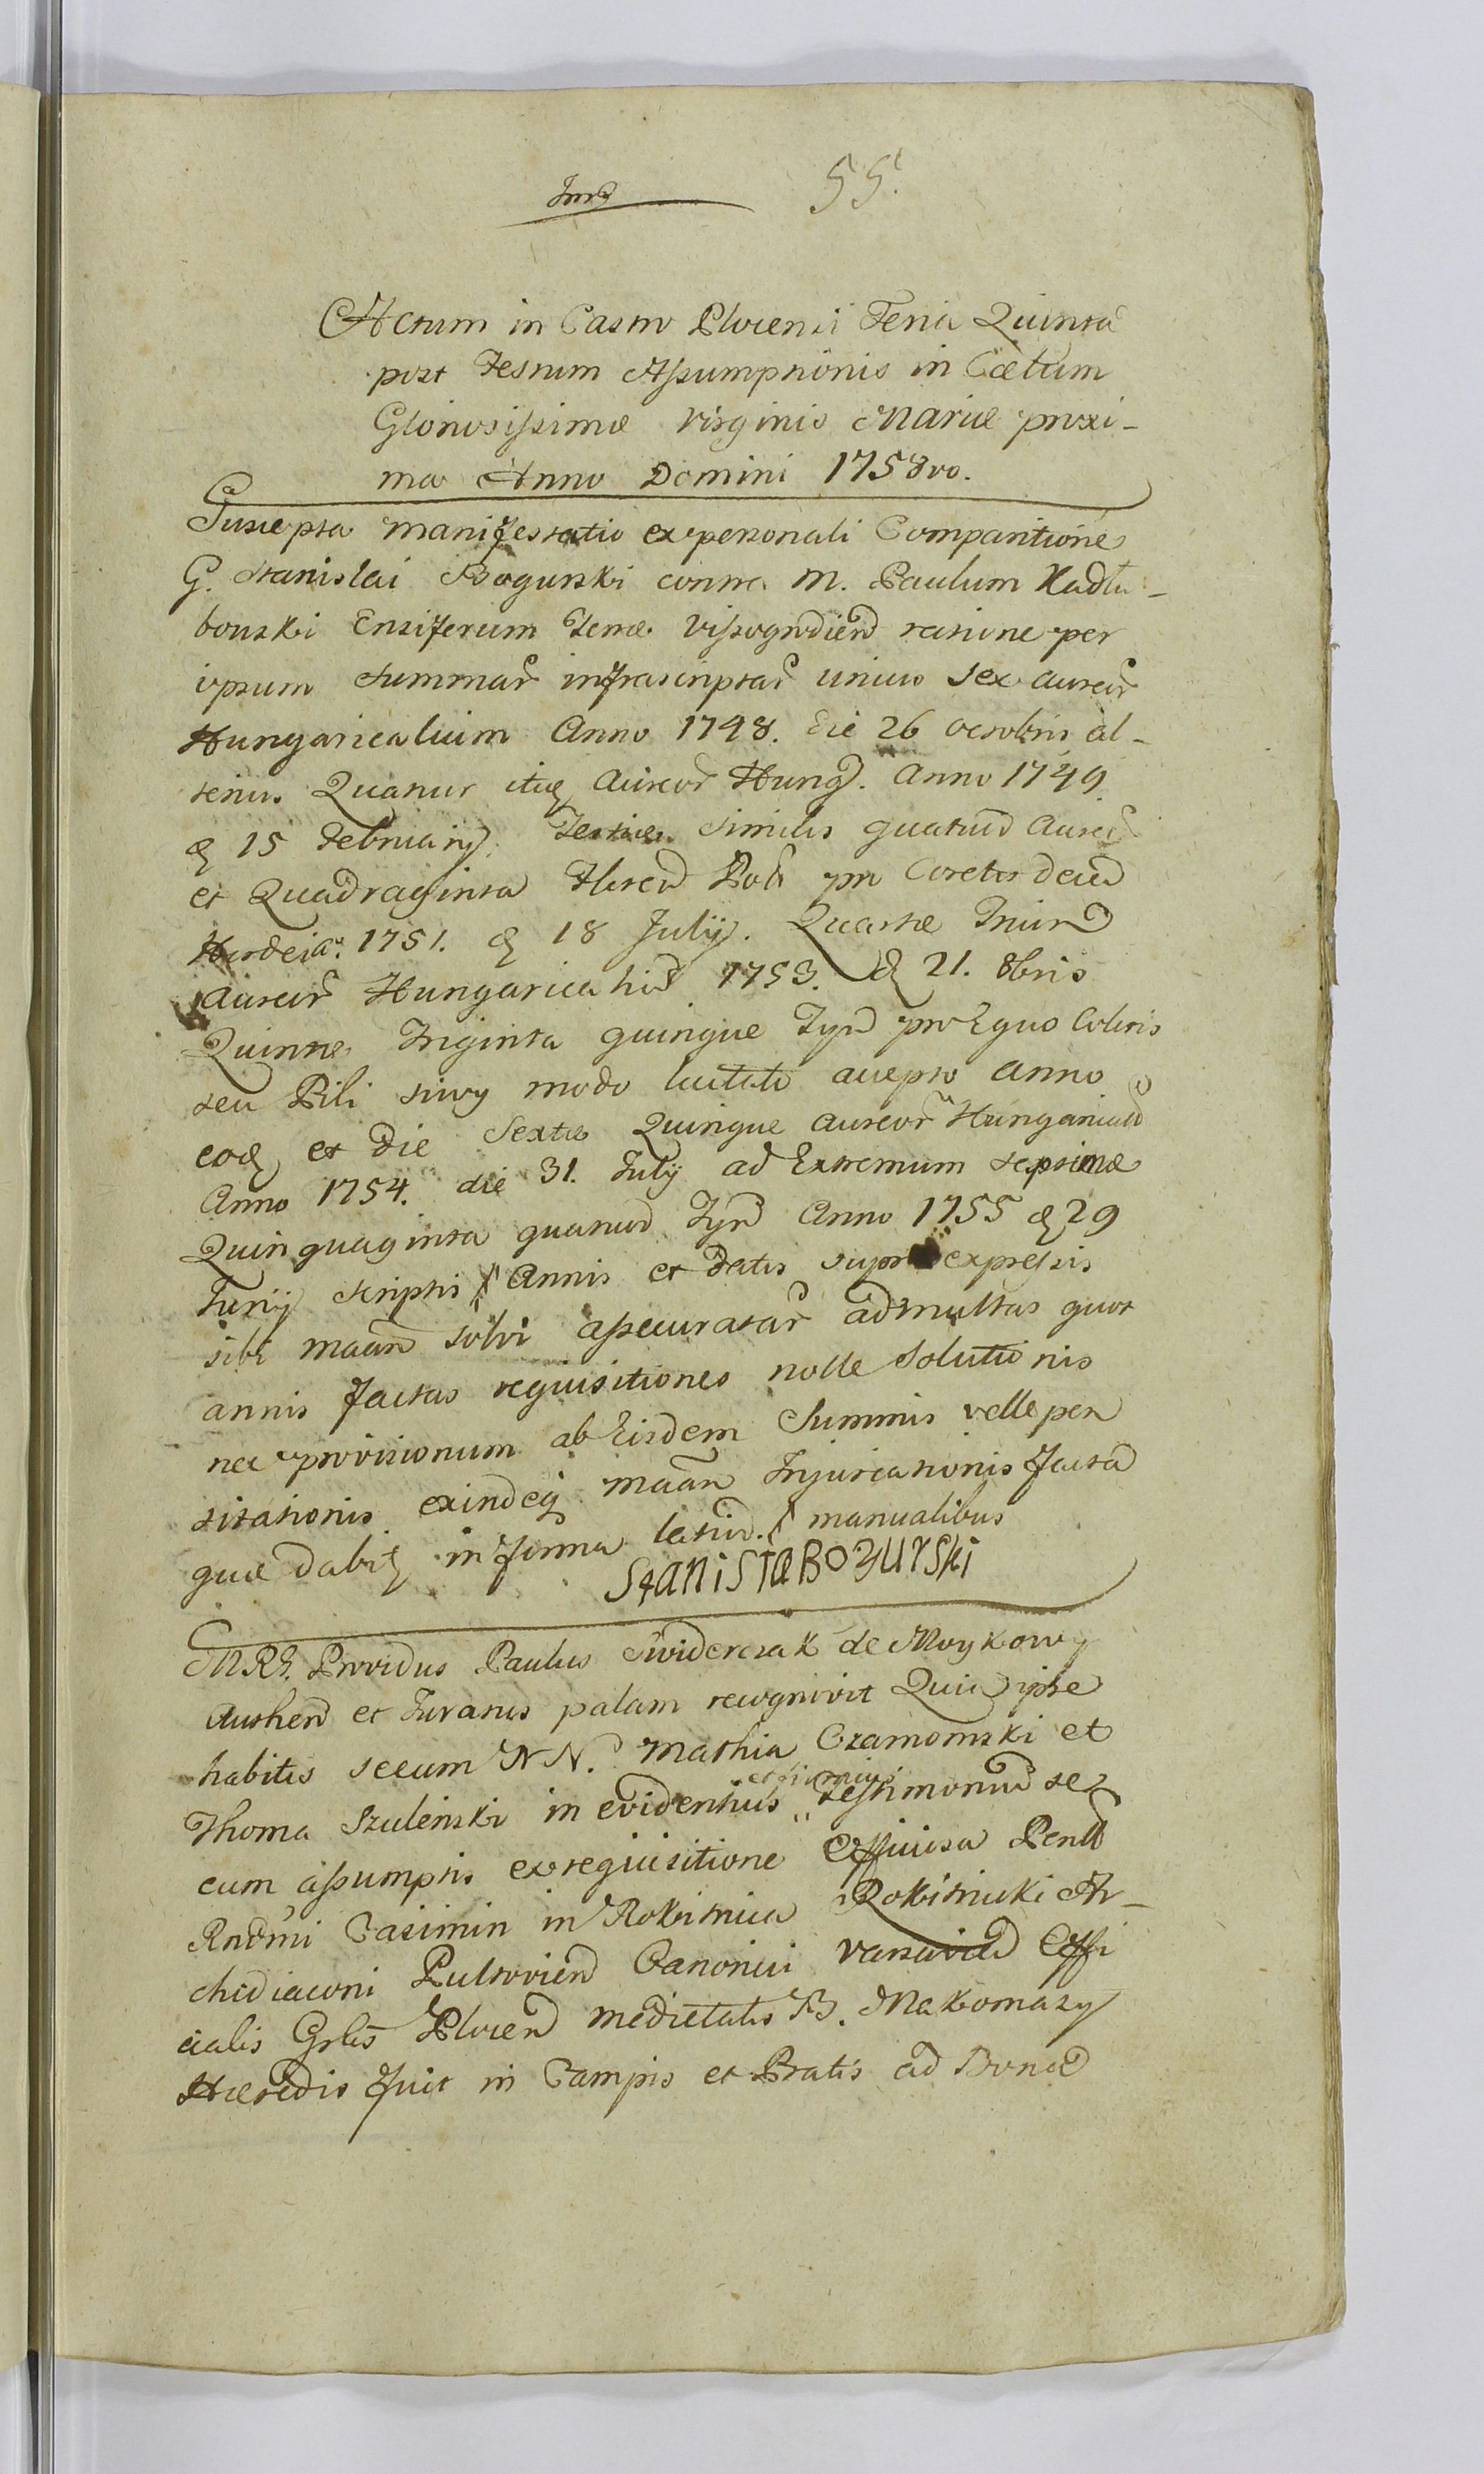 55.
Actum in Castro Plocensi Feria Quinta
post Festum Assumptionis in Cælum
Gloriosissimæ Virginis Mariæ proxi-
ma Anno Domini 1758vo.
Suscepta manifestatio ex personali Comparitione
G. Stanislai Bogurski contra M. Paulum Kadłu-
bowski Ensiferum Terræ Vissogrodien ratione per
ipsum Summar infrascriptar unius sex aureor
Hungaricalium Anno 1748. die 26 octobris al-
terius Quatuor itq aureor Hung. Anno 1749
d 15 February. Tertiæ similis quatuor Aureor
et Quadraginta Floren Pol pro Coretis decem
Hordei ao. 1751. d 18 July. Quartæ Trium
Aureor Hungaricaliu 1753. d 21. 8bris
Quintæ Triginta quinque Tyn pro Equo Coloris
seu Pili siwy modo accepto anno
eod et die Sextæ Quinque aureor Hungarical
Anno 1754. die 31. July ad Extremum septimæ
Quinquaginta quatuor Tyn Anno 1755 d 29
Juny scriptis Annis et datis supra expressis
sibi maan solvi assecuratar ad multas quot
annis factas requisitiones nolle Solutionis
nec provisionum ab Eisdem Summis velle pen
sitationis exindeq maan Injuriationis facta
quæ dabit in forma latiori. manualibus
Stanisła Bogurski
MRS. Providus Paulus Swiderczak de Moykowy
Authen et Juratus palam recognovit Quia ipse
habitis secum NN. Mathia Czarnomski et
Thoma Szulenski in evidentius testimoniu se
cum assumptis ex requisitione Officiosa Perill
Rndmi Casimiri in Rokitnica Rokitnicki Ar-
chidiaconi Pultovien Canonici Varsavien Offi
cialis Gnlis Plocen medietatis B. Makomazy
Hæredis fuit in Campis et Pratis ad Bona